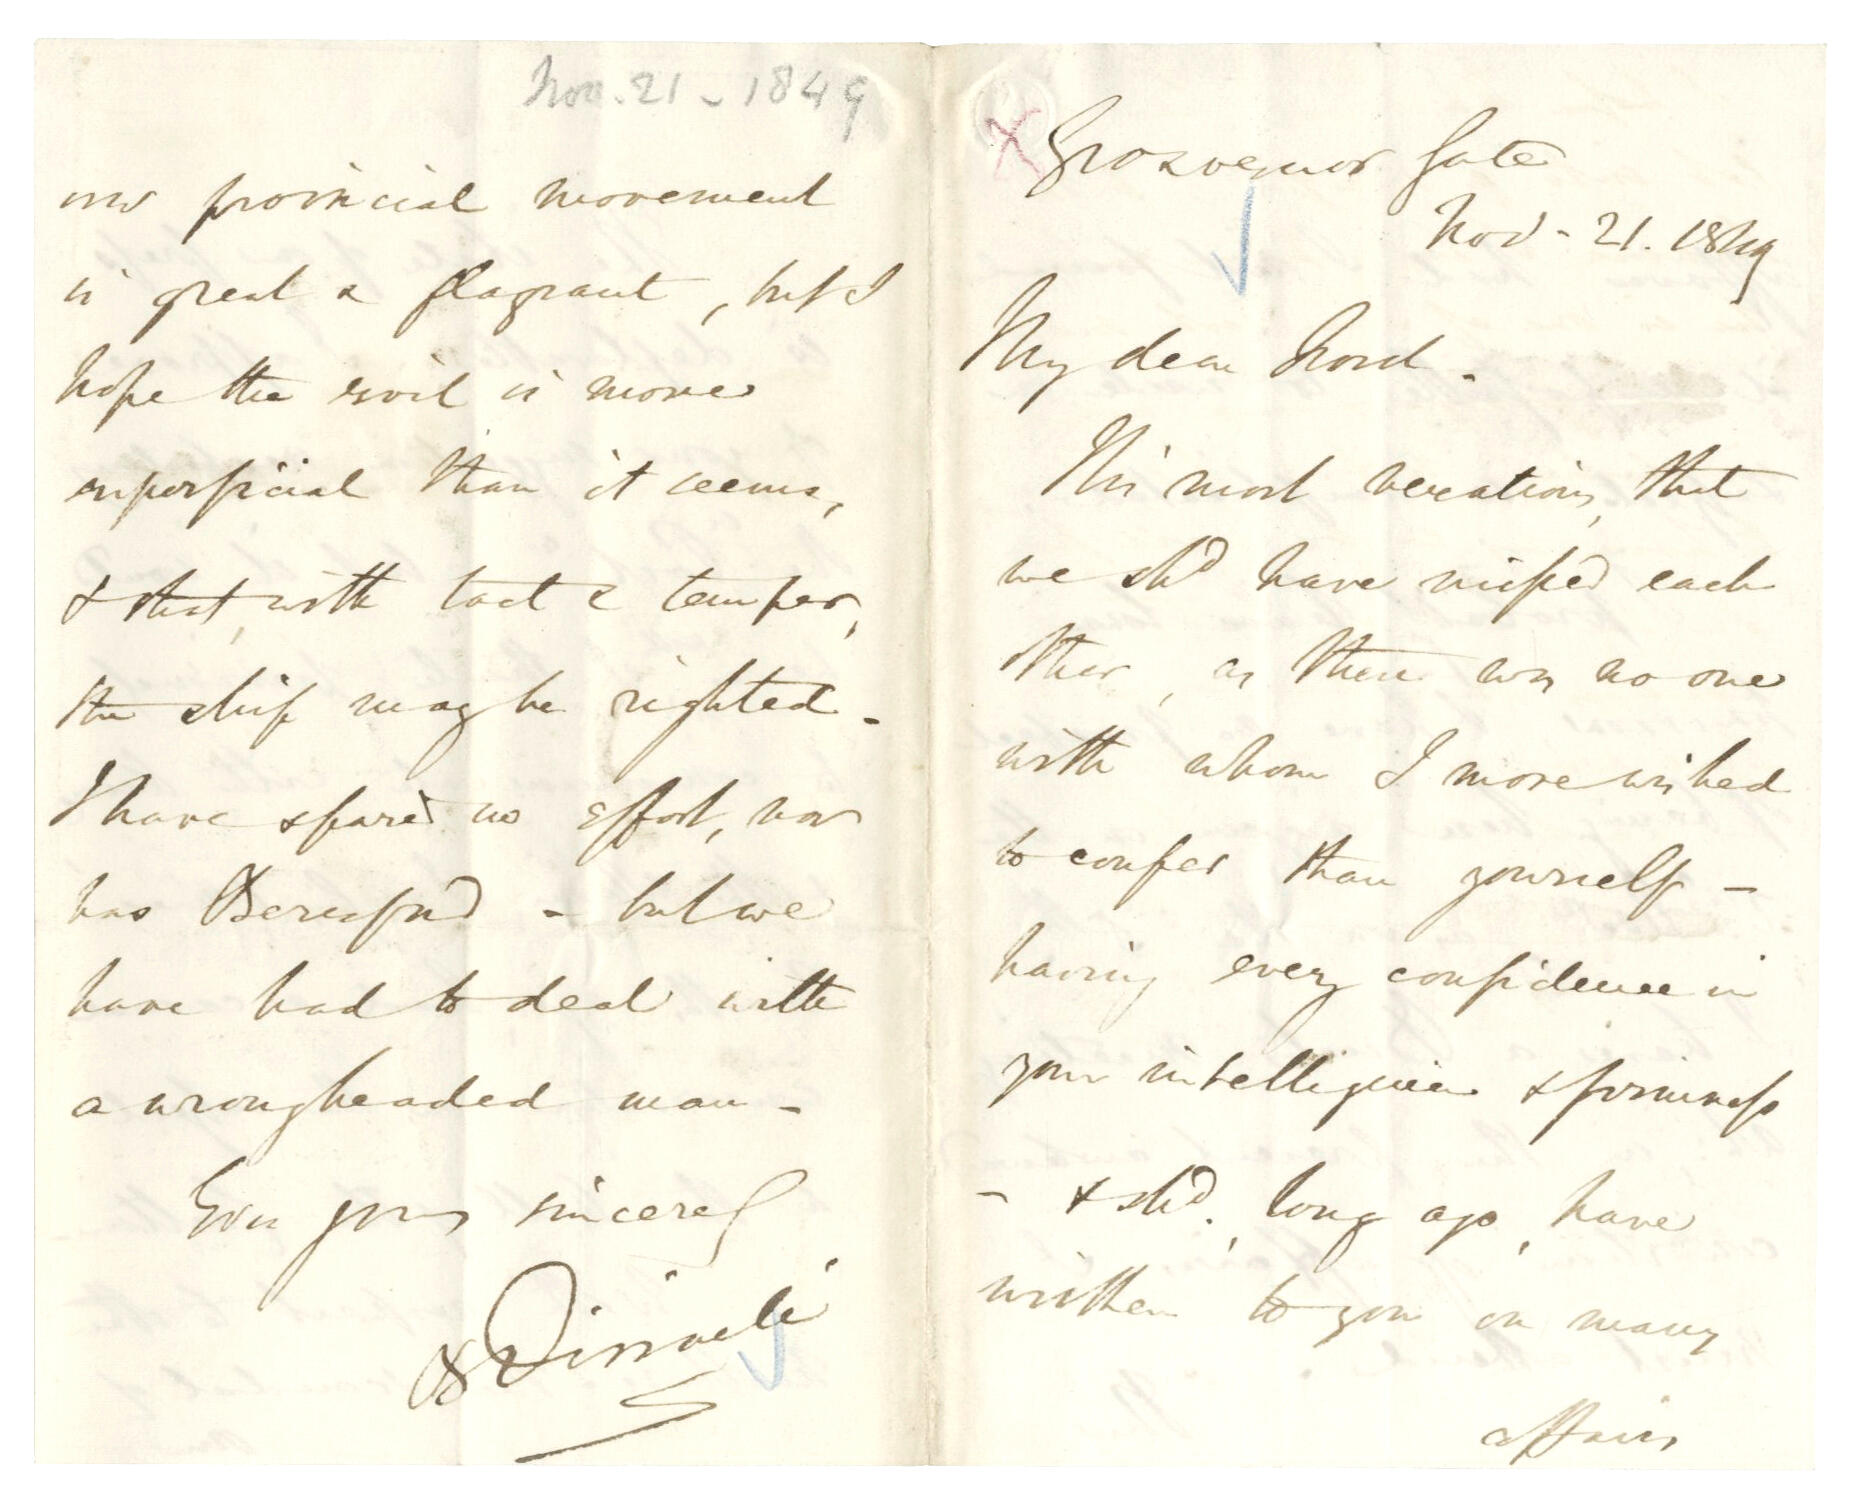 Grosvenor Gate
Nov - 21. 1849
My dear Lord.
'Tis most vexatious, that
we shd have missed each
other, as there was no one
with whom I more wished
to confer than yourself –
having every confidence in
your intelligence & firmness
– & shd., long ago, have
written to you on many
affairs
Nov. 21 - 1849
our provincial movement
is great & flagrant, but I
hope the evil is more
superficial than it seems,
& that, with tact & temper,
the ship may be righted –
I have spared no effort, nor
has Beresford – but we
have had to deal with
a wrongheaded man –
Ever yours sincerely
B Disraeli